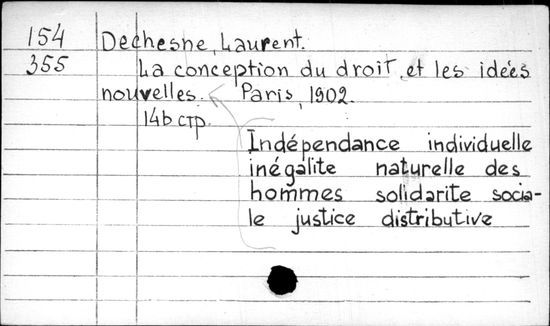 154 Dechesne, Laurent.
355 La conception du droit et les idées
nouvelles. Paris, 1902.
146 стр.
Indépendance individuelle
inégalite naturelle des
hommes solidarite socia-
le justice distributive